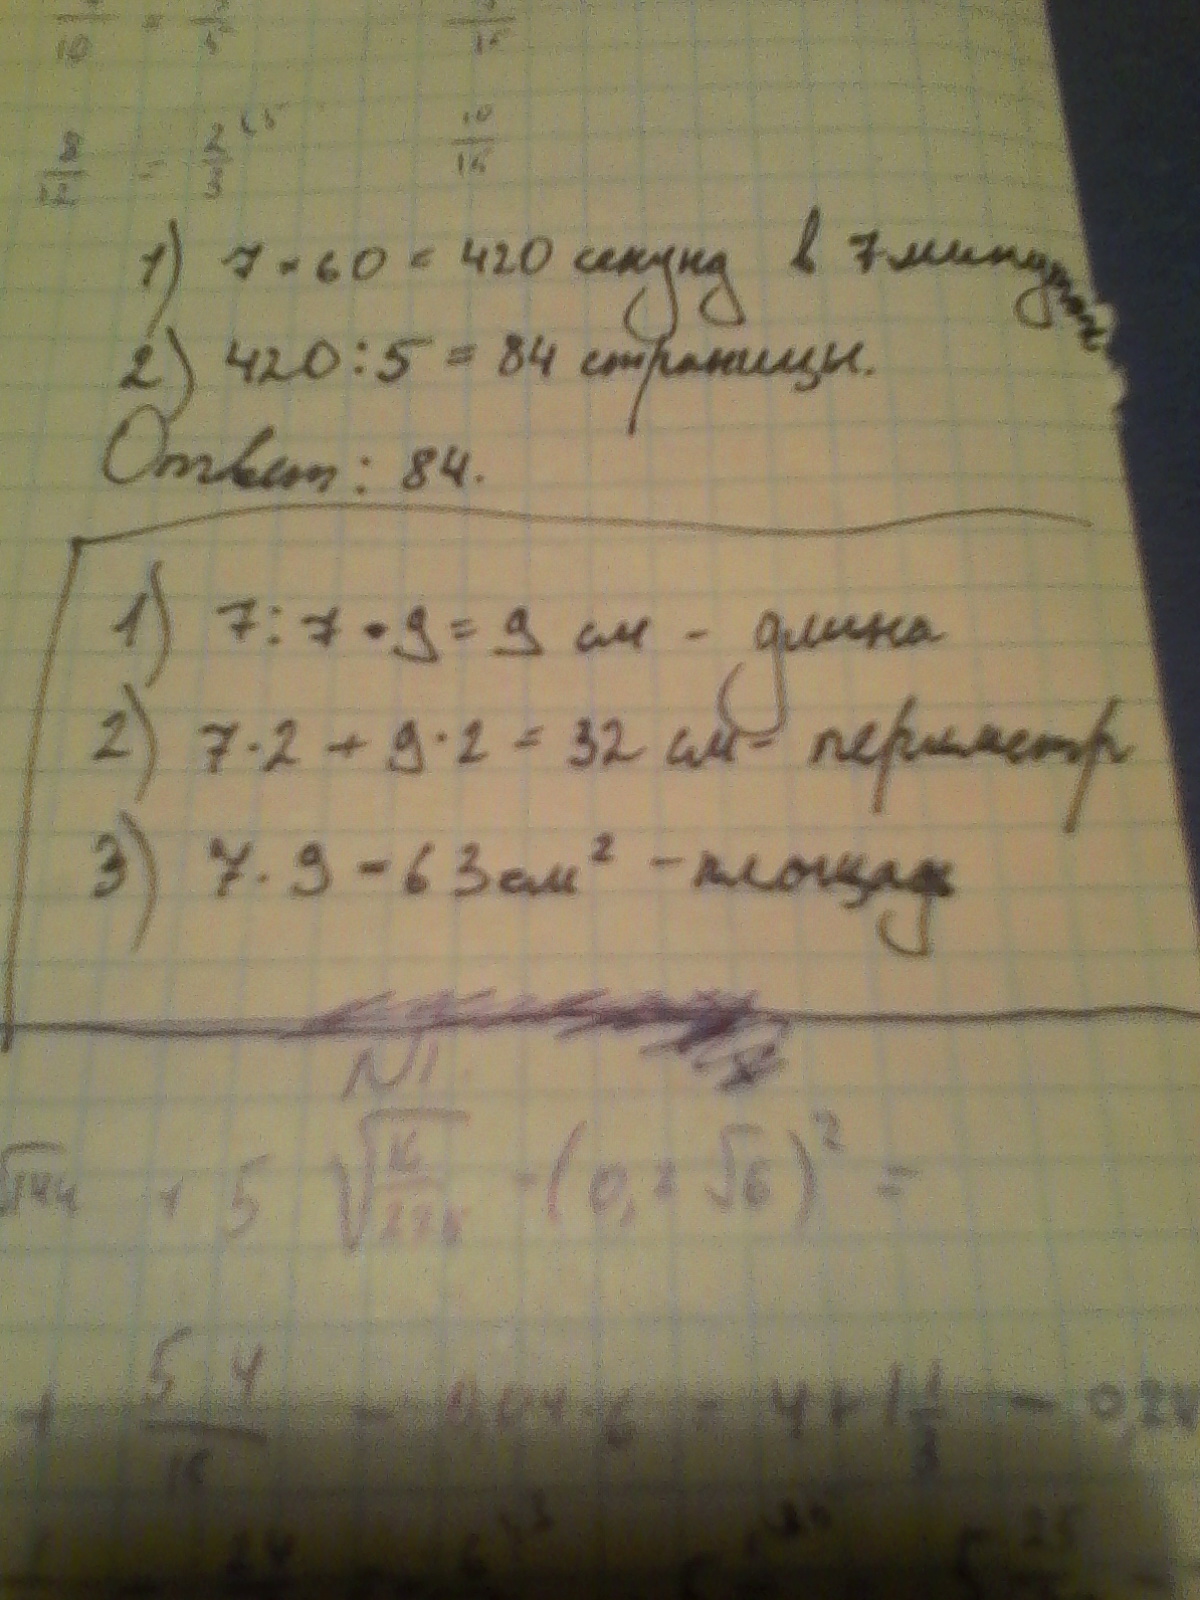 10 = 5 15
8/12 = 2/3 10/15
1) 7 · 60 = 420 секунд в 7 минутах
2) 420 : 5 = 84 страницы.
Ответ: 84.
1) 7 : 7 · 9 = 9 см - длина
2) 7 · 2 + 9 · 2 = 32 см - периметр
3) 7 · 9 = 63 см² - площадь
N1.
√144 + 5 √16/225 - (0,2 √6)² =
+ 5 4/15 - 0,04 · 6 = 4 + 1 1/3 - 0,24
24 6 25